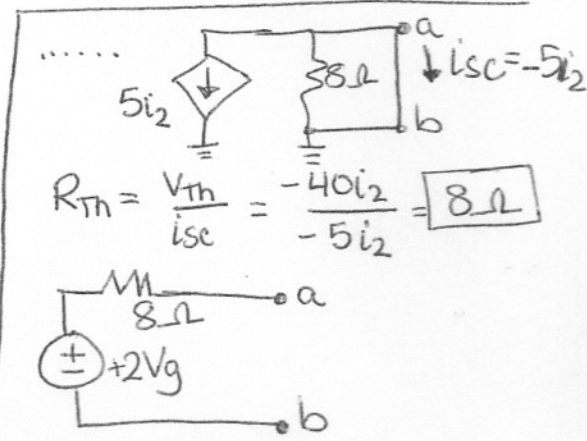 ......
a
5i₂ ↓ 8Ω ↓ isc=-5i₂
b
R_Th = V_Th / isc = -40i₂ / -5i₂ = 8Ω
8Ω a
± +2Vg
b